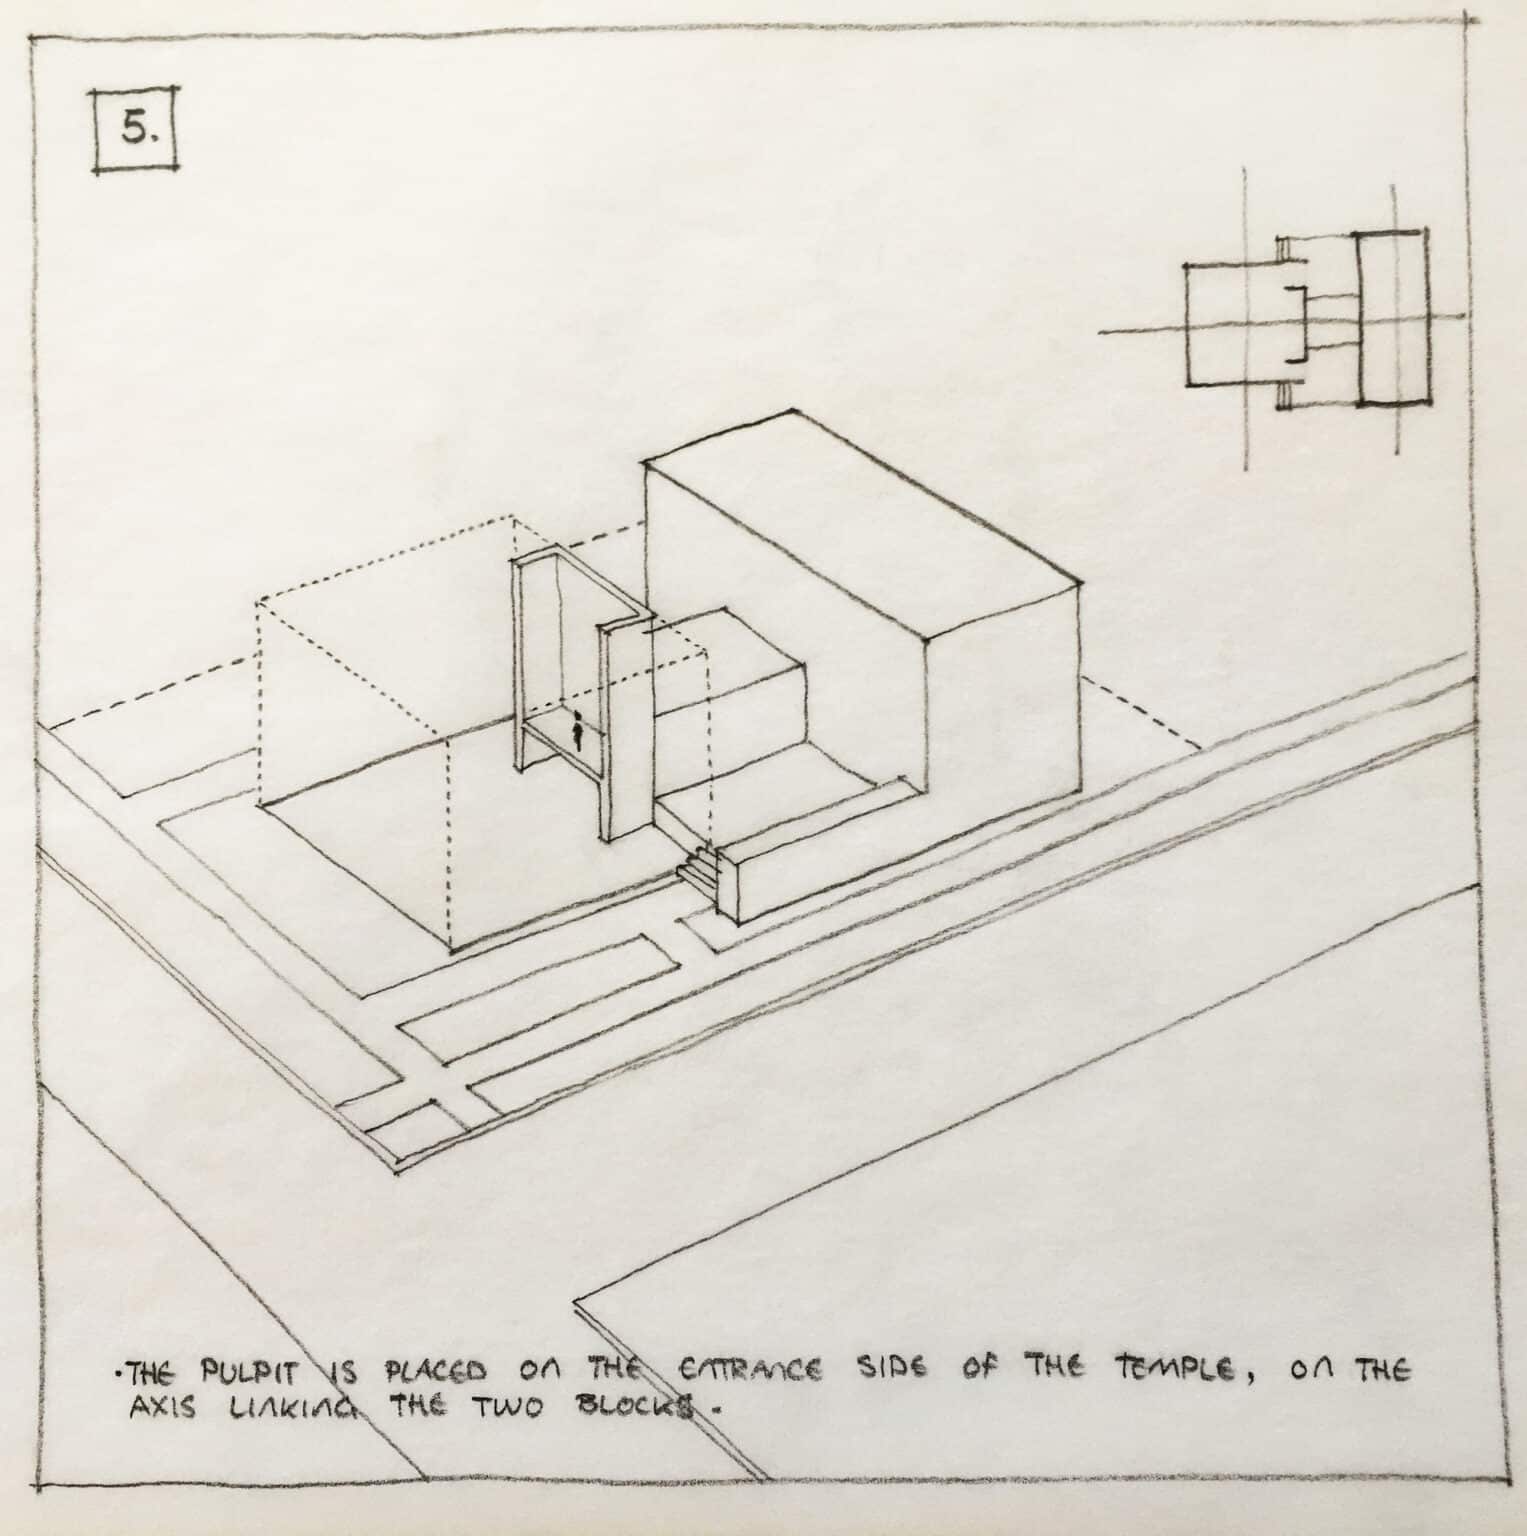 5.
·THE PULPIT IS PLACED ON THE ENTRANCE SIDE OF THE TEMPLE, ON THE
AXIS LINKING THE TWO BLOCKS.